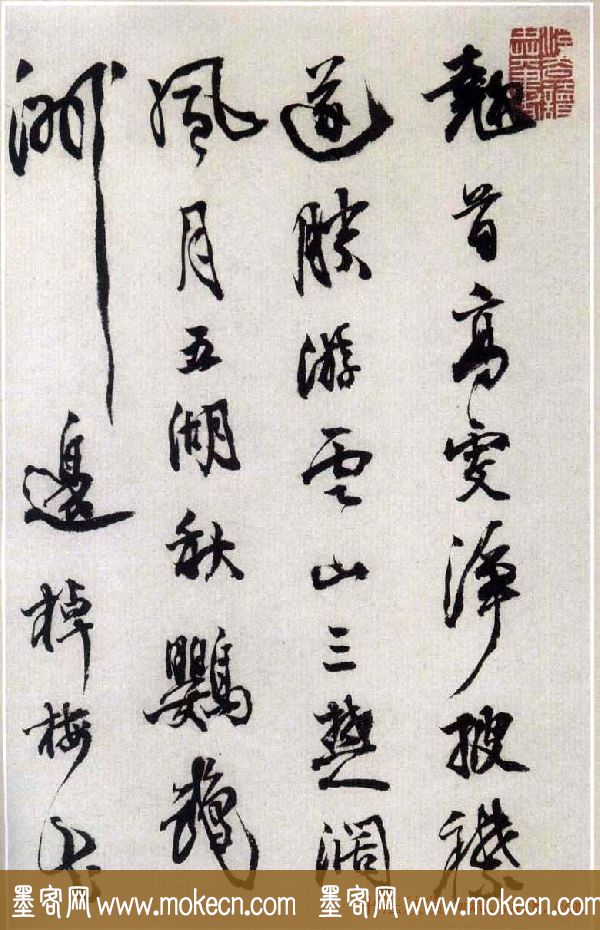 翹首高雯淨披襟
遂勝游雲山三楚闊
風月五湖秋鸚鵡
洲邊棹梅
墨客网 www.mokecn.com 墨客网 www.mokecn.com